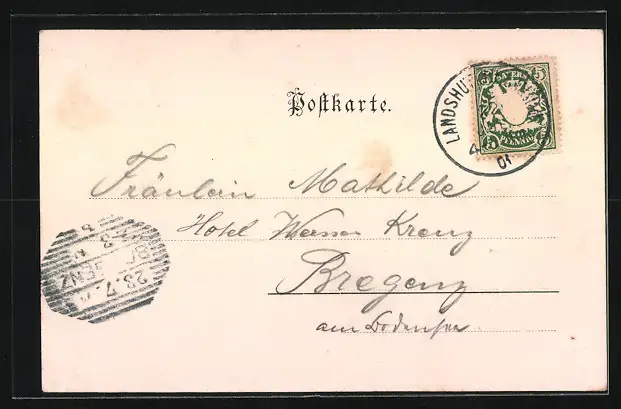 Postkarte.
LANDSHUT
01
BAYERN
PFENNIG
Fräulein Mathilde
Hotel Weisses Kreuz
Bregenz
am Bodensee
23.7.